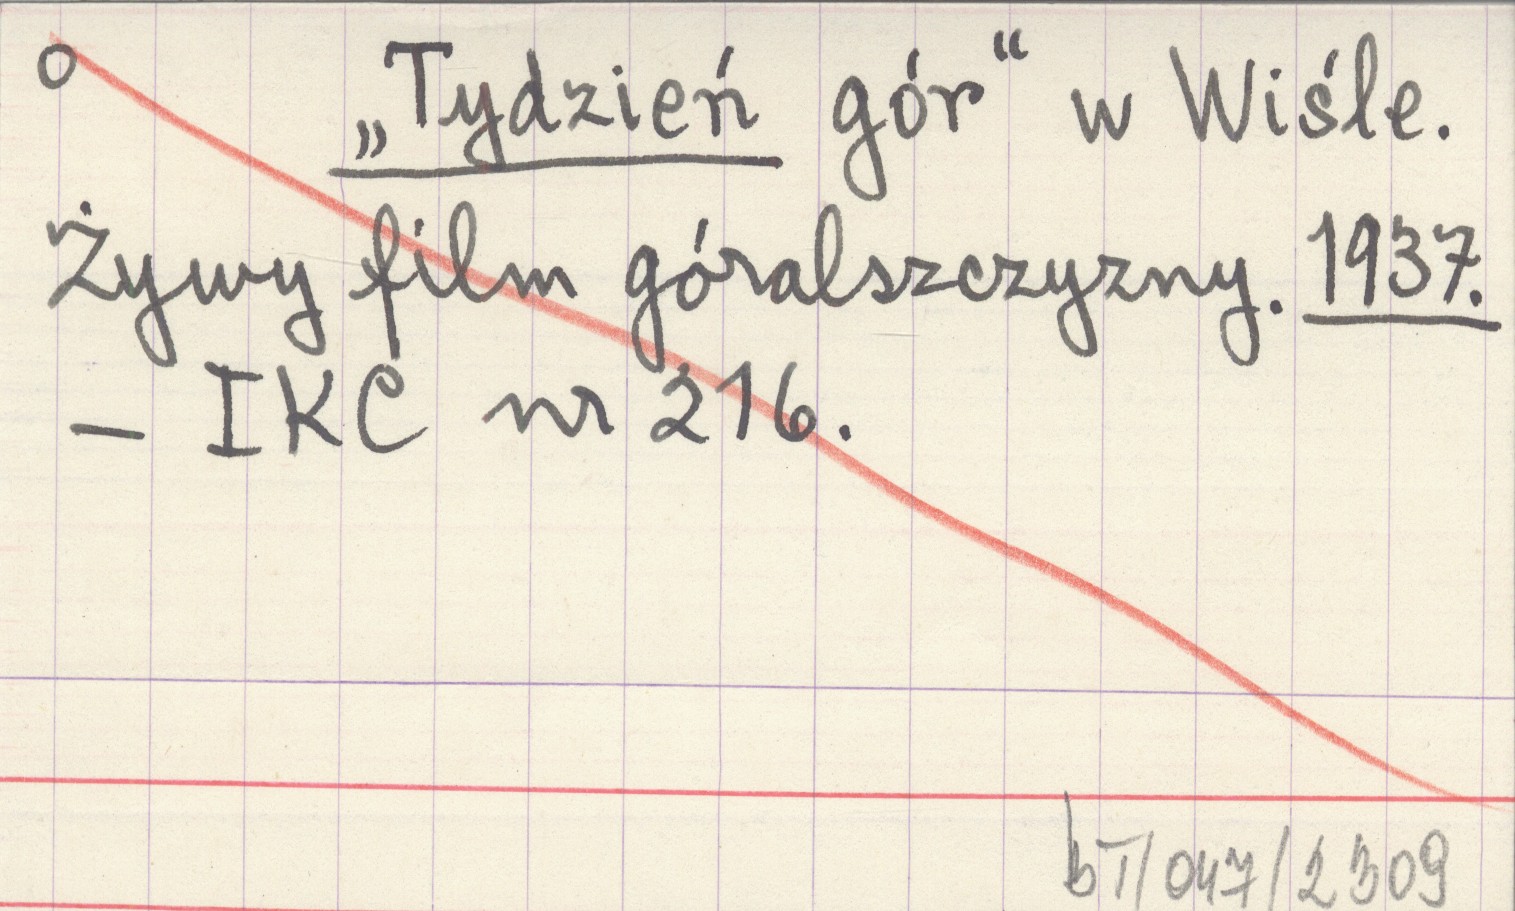 o „Tydzień gór“ w Wiśle.
Żywy film góralszczyzny. 1937.
– IKC nr 216.
bT/047/2309